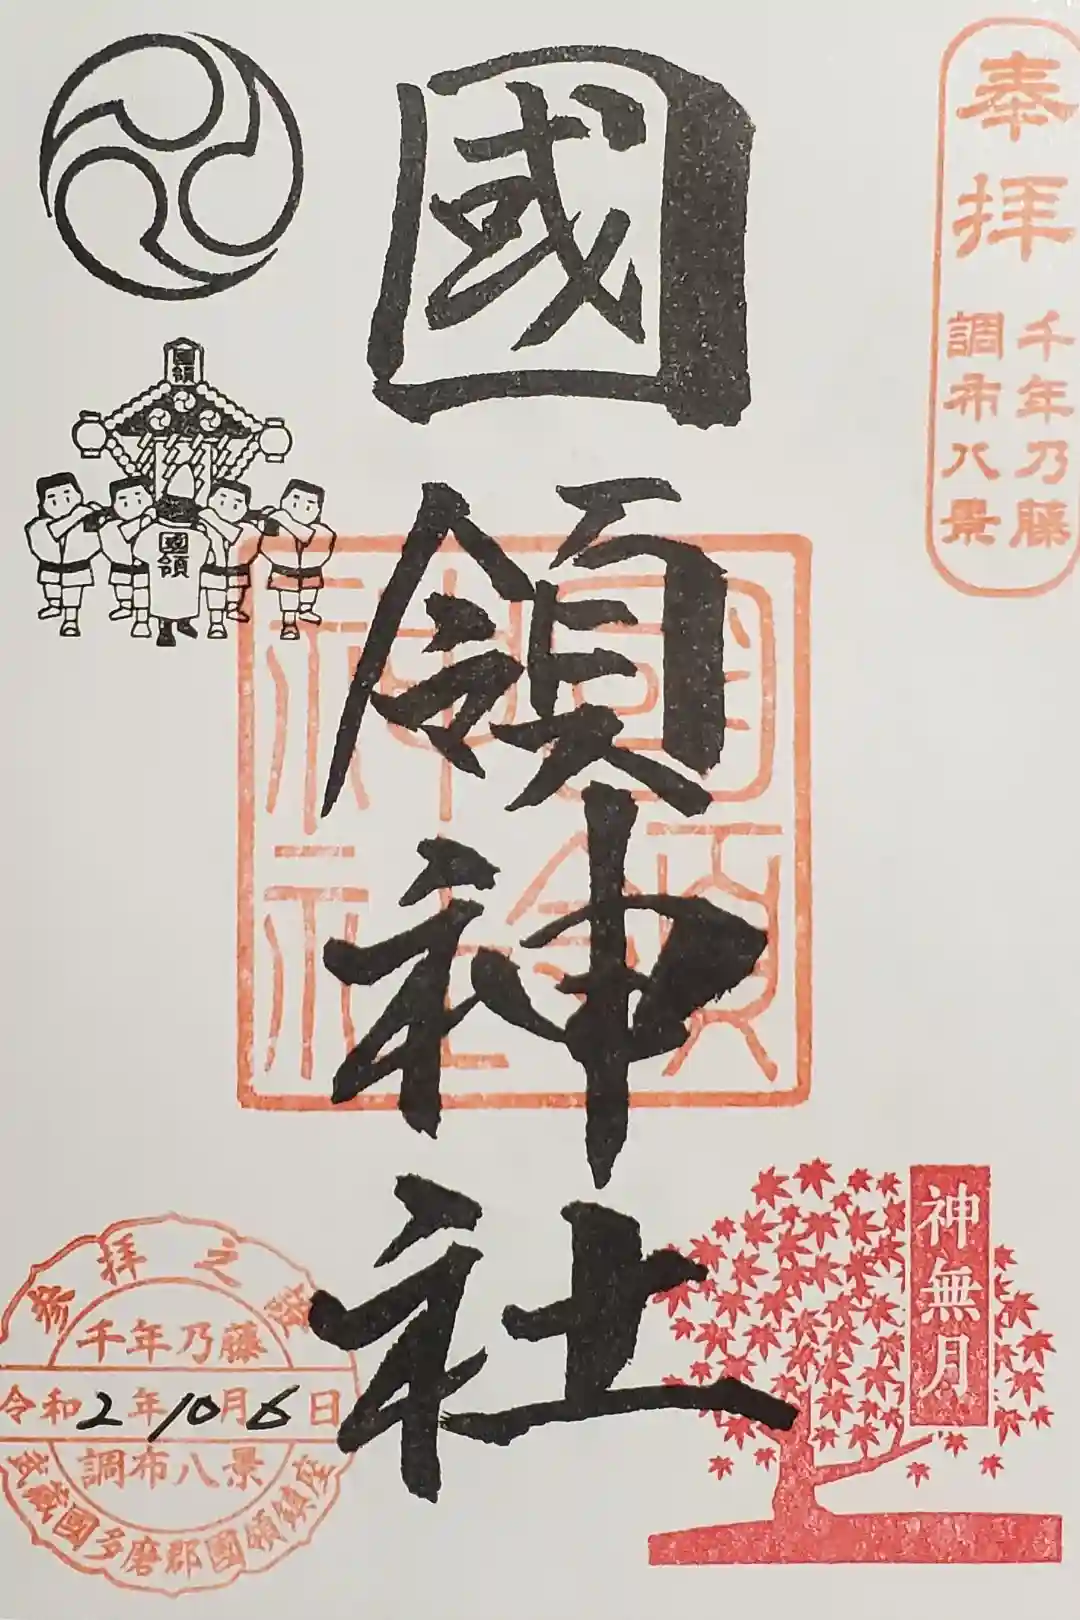 奉拝
千年乃藤
調布八景
國領神社
國領
神社
國領
國領
神無月
参拝之證
千年乃藤
令和2年10月6日
調布八景
武蔵國多磨郡國領鎮座